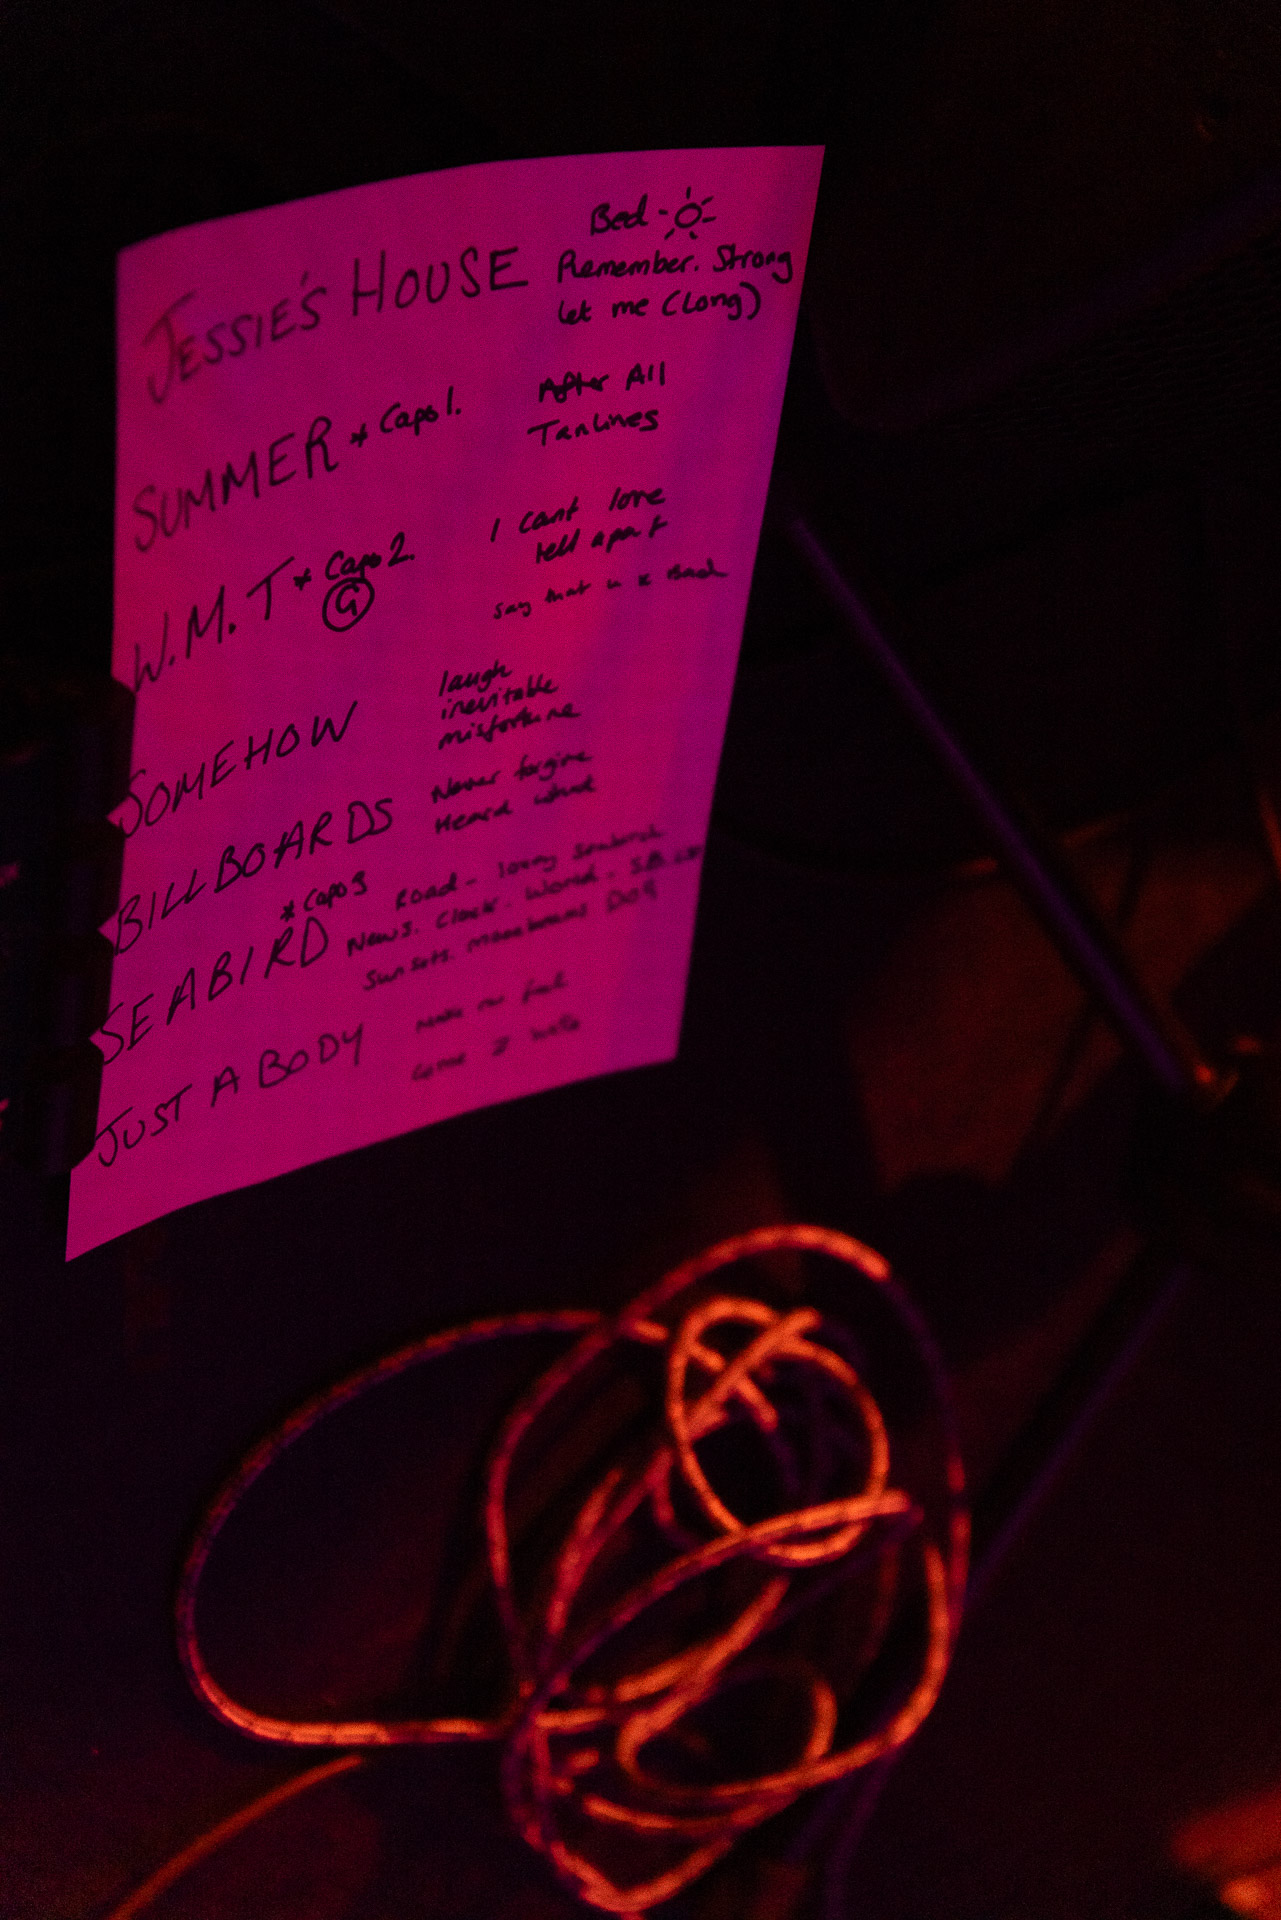 Bed -
JESSIE'S HOUSE Remember. Strong
let me (Long)
SUMMER * Capo 1. After All
Tanlines
W.M.T * Capo 2. I cant love
G tell apart
say that Bad
SOMEHOW laugh
inevitable
misfortune
BILLBOARDS Never forgive
Heard what
* Capo 3 Road - loving seabird
SEABIRD News. Clock. World.
Sunsets. Moonbeams DOG
JUST A BODY make me feel
come